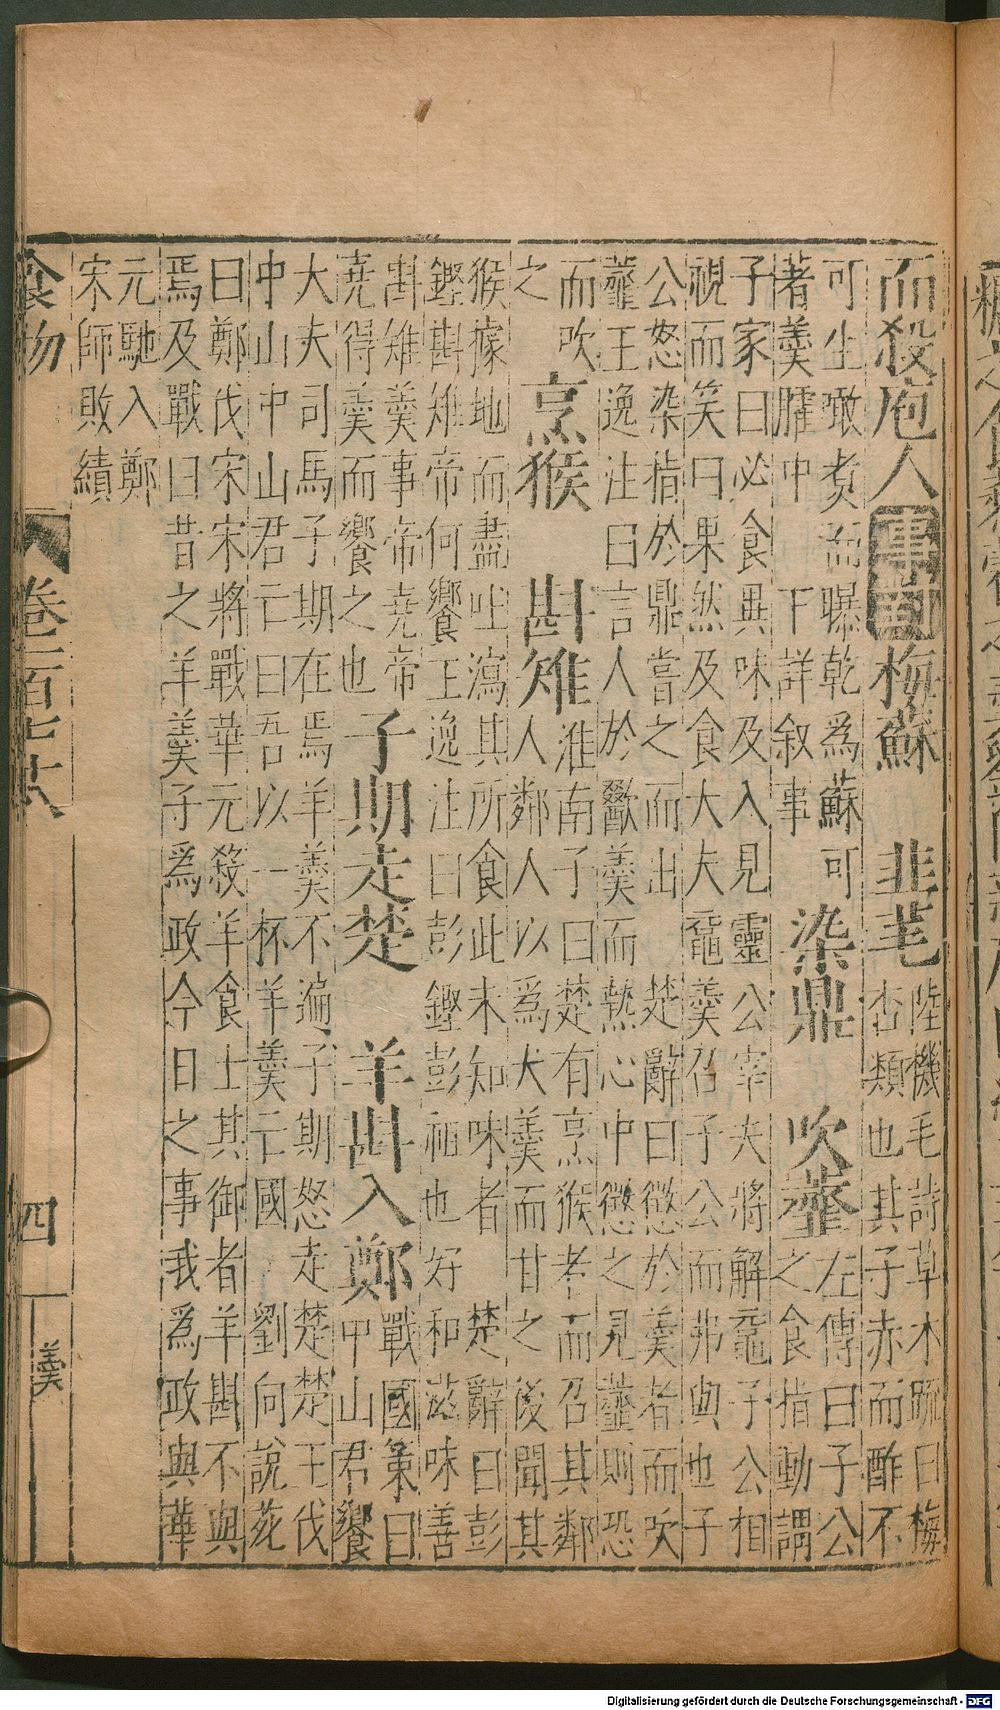 而殺庖人事對梅蘇　韭芼陸機毛詩草木疏曰梅
杏類也其子赤而酢不
可生噉煑而曝乾為蘇可
著羹臛中　下詳叙事
染鼎　吹虀左傳曰子公
之食指動謂
子家曰必食異味及入見靈公宰夫將解黿子公相
視而笑曰果然及食大夫黿羹召子公而弗與也子
公怒染指於鼎嘗之而出　楚辭曰懲於羹者而吹
虀王逸注曰言人於歠羹而熱心中懲之見虀則恐
而吹
之
烹猴　斟雉淮南子曰楚有烹猴者而召其鄰
人鄰人以為犬羹而甘之後聞其
猴據地而盡吐瀉其所食此未知味者　楚辭曰彭
鏗斟雉帝何饗王逸注曰彭鏗彭祖也好和滋味善
斟雉羹事帝堯帝
堯得羹而饗之也
子期走楚　羊斟入鄭戰國策曰
甲山君饗
大夫司馬子期在焉羊羹不遍子期怒走楚楚王伐
中山中山君亡曰吾以一杯羊羹亡國　劉向說苑
曰鄭伐宋宋將戰華元殺羊食士其御者羊斟不與
焉及戰曰昔之羊羹子為政今日之事我為政與華
元馳入鄭
宋師敗績
食物　卷二百　四　羹
Digitalisierung gefördert durch die Deutsche Forschungsgemeinschaft - DFG